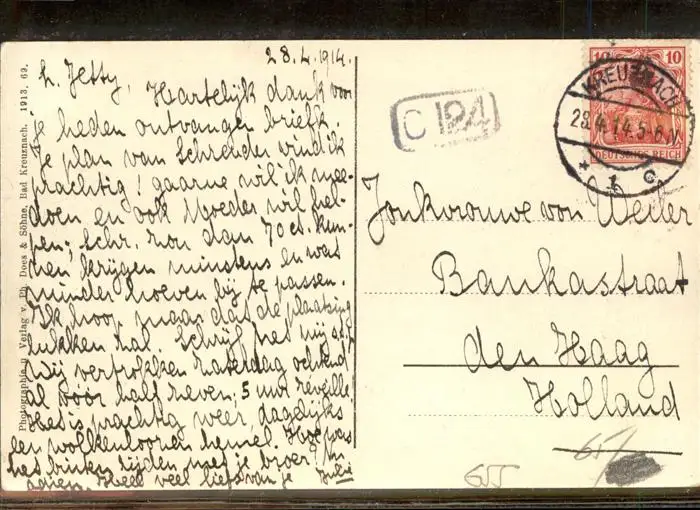 28.4.1914.
L. Jetty, Hartelijk dank voor
je heden ontvangen briefk.
Je plan van Schreuder vind ik
prachtig! gaarne wil ik mee-
doen en ook Moeder wil hel-
pen; Schr. zou dan 70 ct. kun-
nen krijgen minstens en wat
minder hoeven bij te passen.
Ik hoop maar dat de plaatsing
lukken zal. Schrijf het mij
Wij vertrokken Zaterdag ochtend
al vóór half zeven; 5 uur réveille!
Het is prachtig weer, dagelijks
een wolkenloozen hemel. Hoe was
het buiten rijden met je broer?
Heel veel liefs van je Julie
Photographie u. Verlag v. Ph. Does & Söhne, Bad Kreuznach. 1913. 69.
C 124
10
KREUZNACH
28.4.14.5-6.V.
* 1 c
DEUTSCHES REICH
Jonkvrouwe von Weiler
Bankastraat
den Haag
Holland
657
655